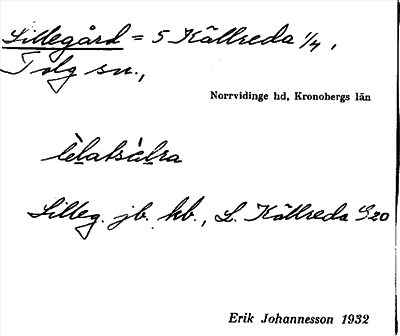 Lillegård = 5 Källreda 1/4,
Tolg sn.,
Norrvidinge hd, Kronobergs län
Lilleg. jb. kb., L. Källreda S20
Erik Johannesson 1932